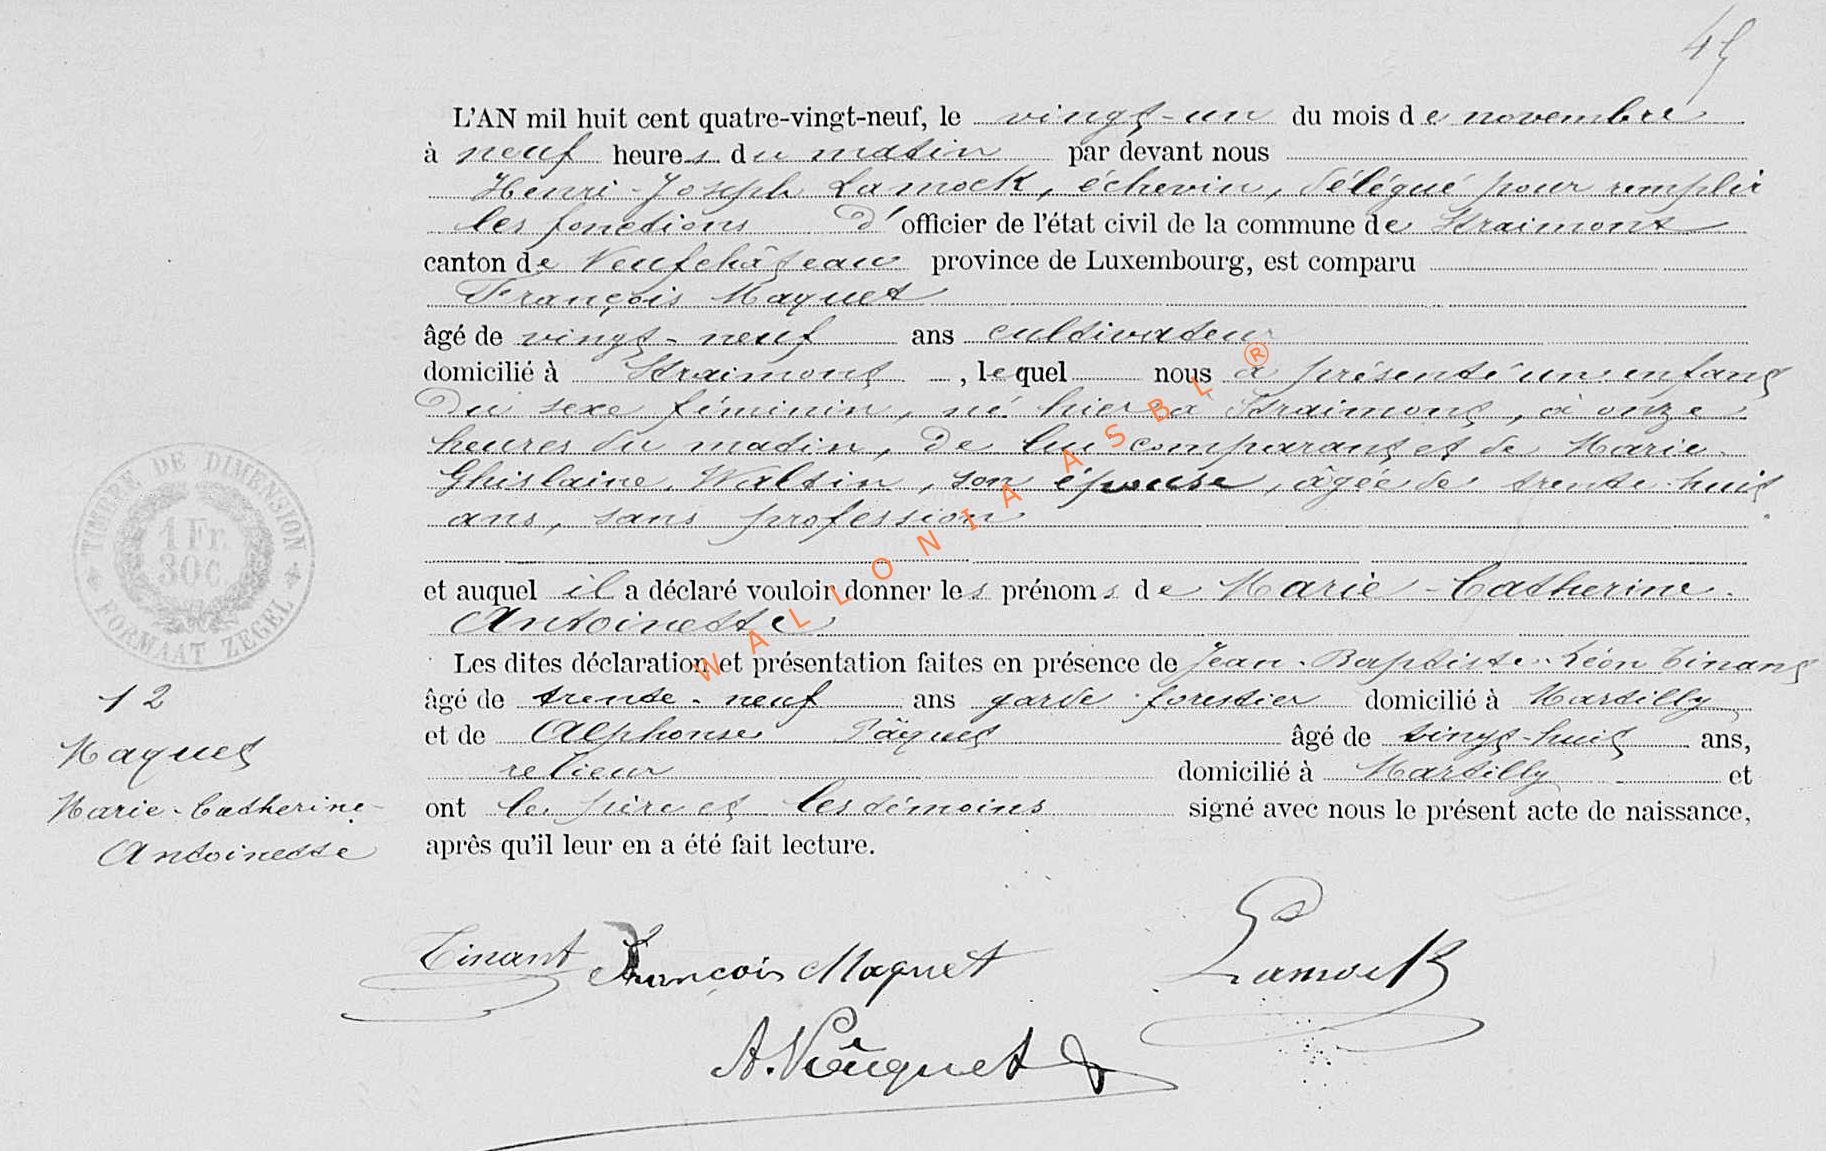 45
L'AN mil huit cent quatre-vingt-neuf, le vingt-un du mois de novembre
à neuf heures du matin par devant nous
Henri-Joseph Lamock, échevin, délégué pour remplir
les fonctions d'officier de l'état civil de la commune de Straimont
canton de Neufchâteau province de Luxembourg, est comparu
François Maquet
âgé de vingt-neuf ans cultivateur
domicilié à Straimont, lequel nous a présenté un enfant
du sexe féminin, né hier à Straimont, à onze
heures du matin, de lui comparant et de Marie
Ghislaine Waltin, son épouse, âgée de trente-huit
ans, sans profession
et auquel il a déclaré vouloir donner les prénoms de Marie-Catherine-
Antoinette
Les dites déclaration et présentation faites en présence de Jean-Baptiste-Léon Tinant
âgé de trente-neuf ans garde forestier domicilié à Martilly
et de Alphonse Pâquet âgé de vingt-huit ans,
relieur domicilié à Martilly et
ont le père et les témoins signé avec nous le présent acte de naissance,
après qu'il leur en a été fait lecture.
TIMBRE DE DIMENSION
1 Fr.
30 C.
FORMAAT ZEGEL
12
Maquet
Marie-Catherine-
Antoinette
Tinant François Maquet Lamock
A. Pâquet
WALLONIA ASBL ®